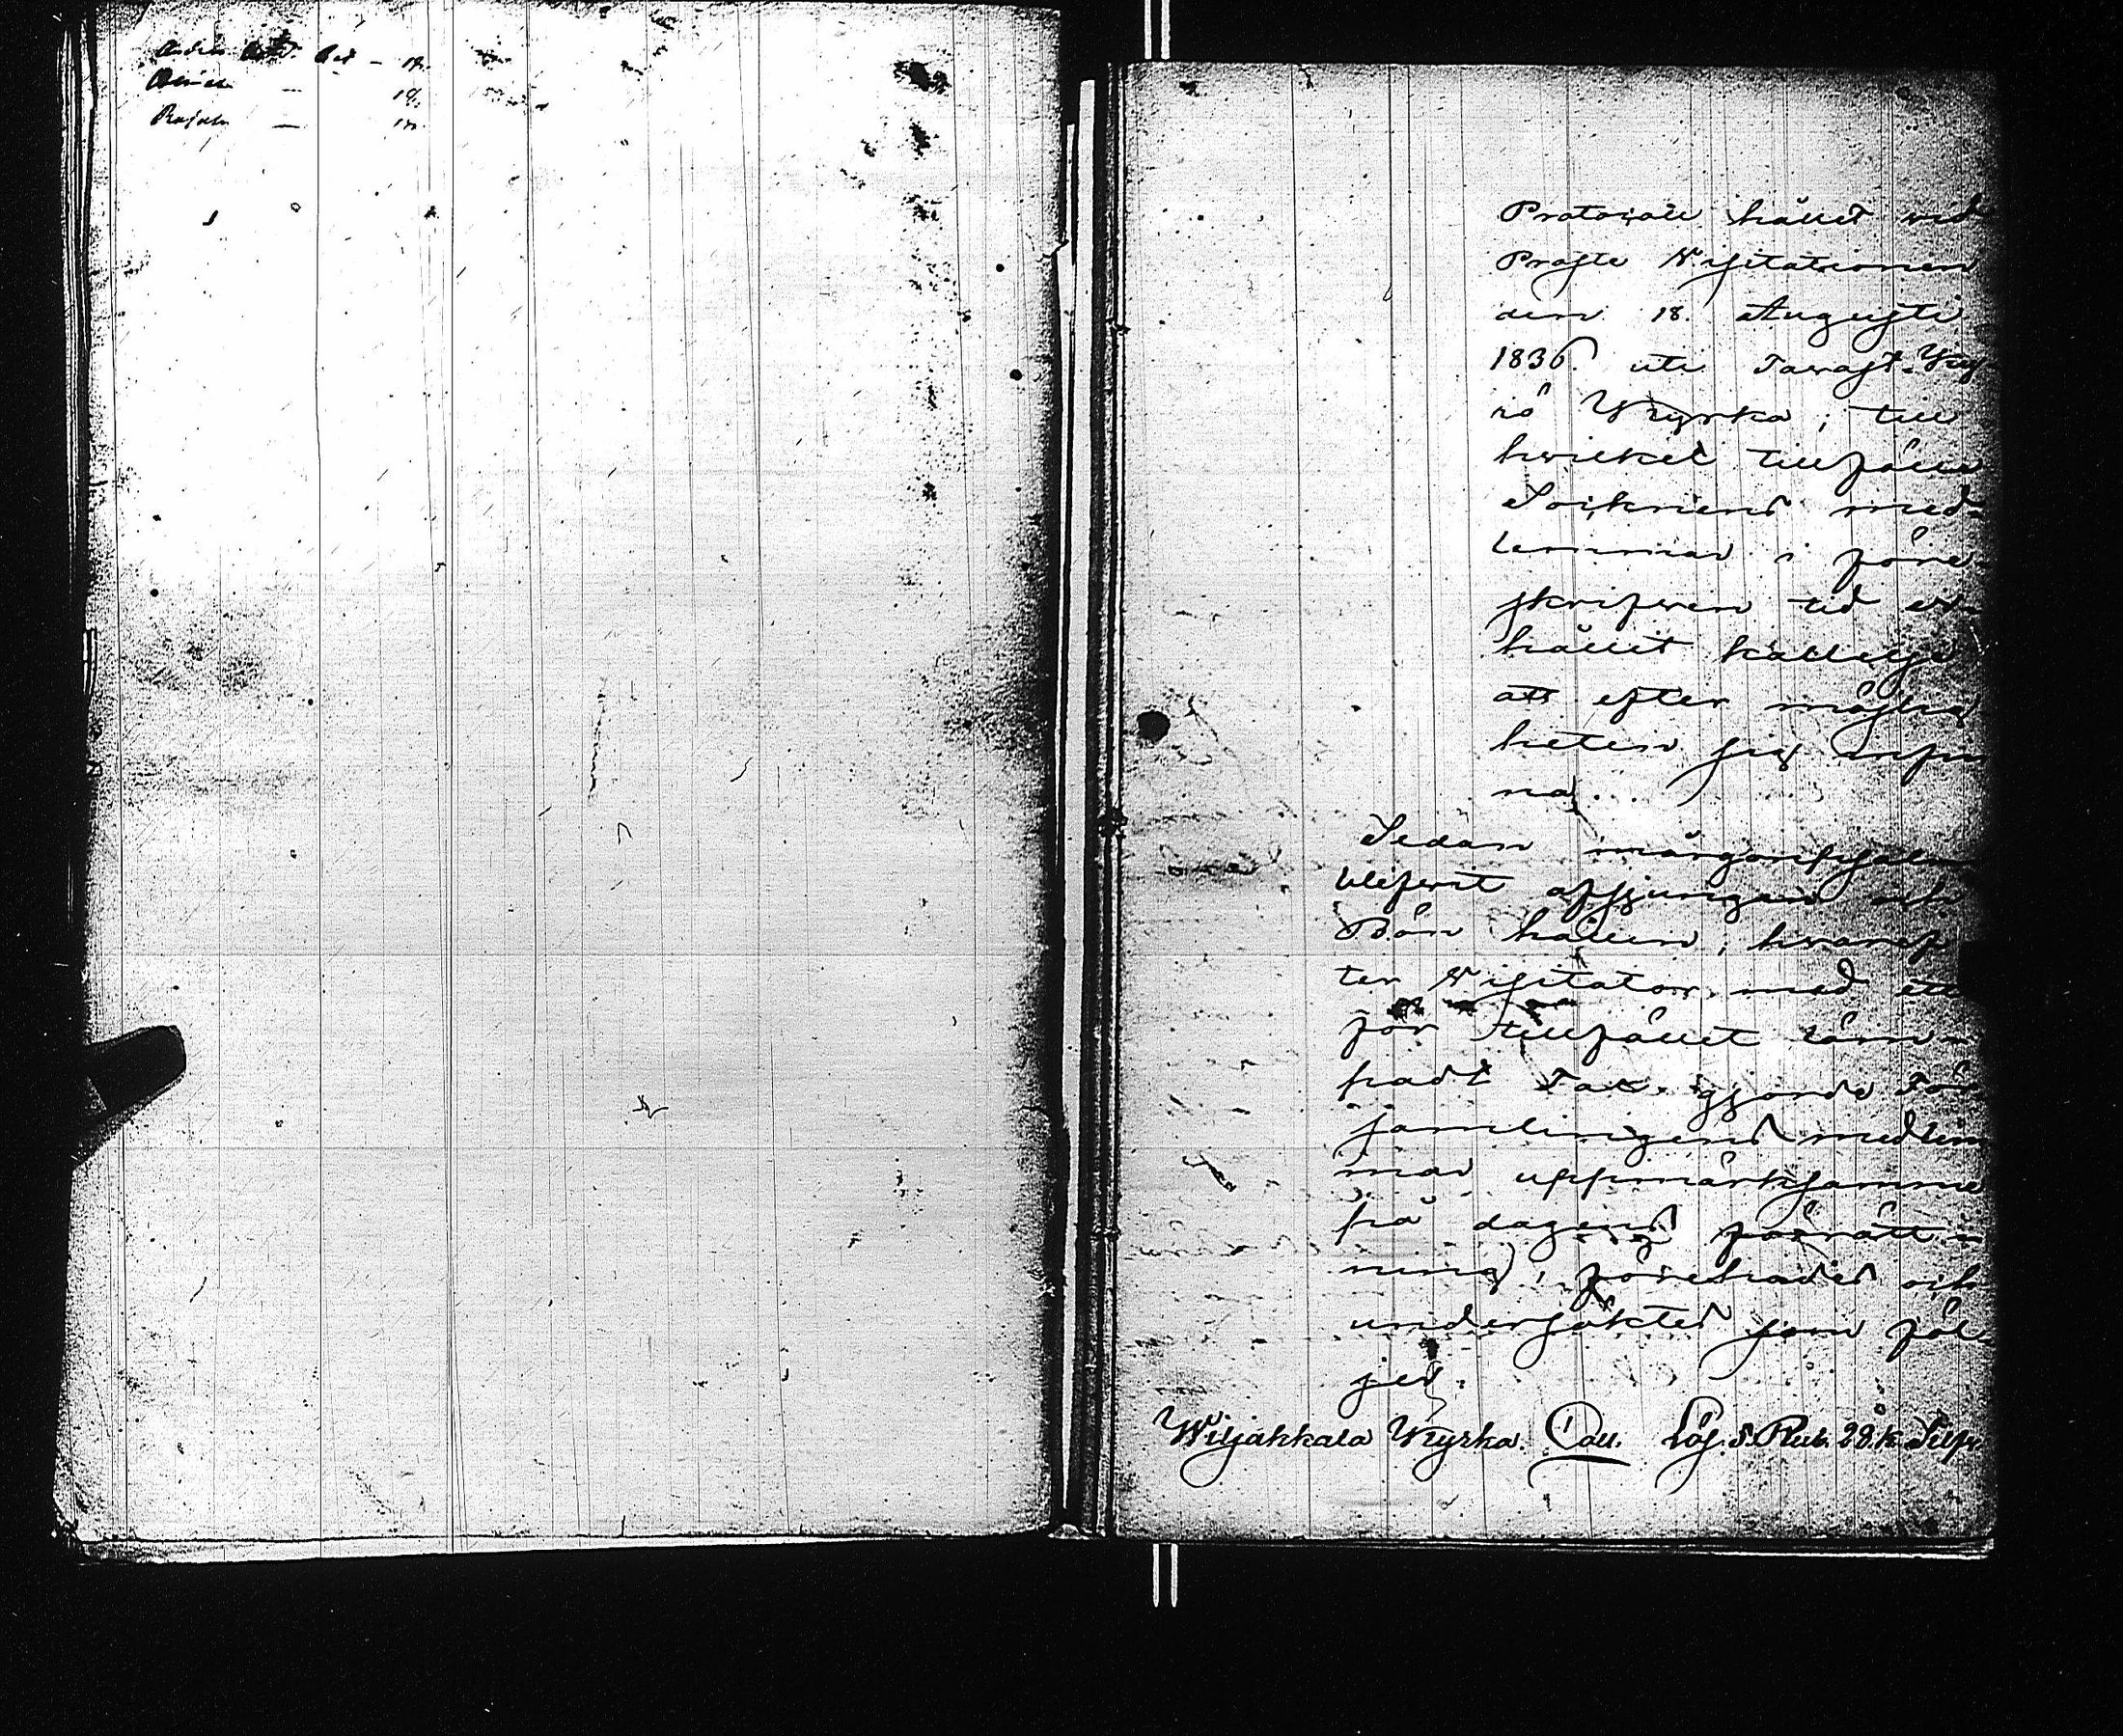 Protocoll hållet vid
Prosts Visitationen
den 18. Augusti
1836. uti Tavast-Ky-
rö Kyrka; till
hvilket tillfälle
Socknens med-
lemmar i före-
skrifven tid er-
hållit kallelse
att efter möjlig
heten sig infin
na.
Sedan morgonpsalm
blifvit afsjungen och
Bön hållen, hvaref
ter Visitator med ett
för tillfället läm-
padt Tal gjorde För
samlingens medlem
mar uppmärksamme
på dagens förrätt-
ning, förehades och
undersöktes som föl-
jer.
Wiljakkala Kyrka. Coll. Löf. 5. Rub. 28. k. Silfv.